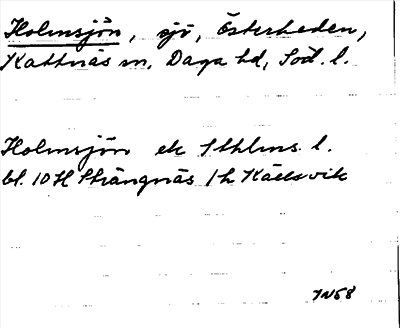 Holmsjön, sjö, Österheden,
Kattnäs sn, Daga hd, Söd. l.
Holmsjön ek Sthlms l.
bl. 10 H Strängnäs 1 h Kärlsvik